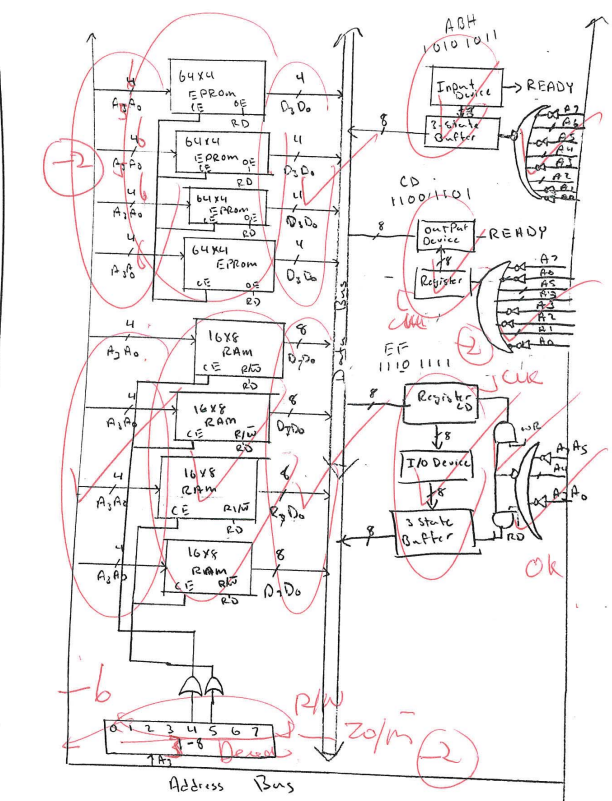 ABH
10101011
64x4
EPROM
CE
OE
RD
4
A3A0
4
D3D0
64x4
EPROM
CE
OE
RD
4
A3A0
4
D3D0
64x4
EPROM
CE
OE
RD
4
A3A0
4
D3D0
64x4
EPROM
CE
OE
RD
4
A3A0
4
D3D0
-2
Input
Device
READY
3-state
Buffer
8
A7
A6
A5
A4
A3
A2
A1
A0
CD
11001101
Output
Device
READY
8
Register
8
A7
A6
A5
A3
A3
A2
A1
A0
-2
Bus
16x8
RAM
CE
R/W
RD
4
A3A0
8
D7D0
16x8
RAM
CE
R/W
RD
4
A3A0
8
D7D0
16x8
RAM
CE
R/W
RD
4
A3A0
8
D7D0
16x8
RAM
CE
R/W
RD
4
A3A0
8
D7D0
EF
1110 1111
Register
LD
8
8
I/O Device
8
3 State
Buffer
8
WR
RD
A4
Ok
-6
R/W
IO/M
-2
0 1 2 3 4 5 6 7
-8
A3
Address Bus